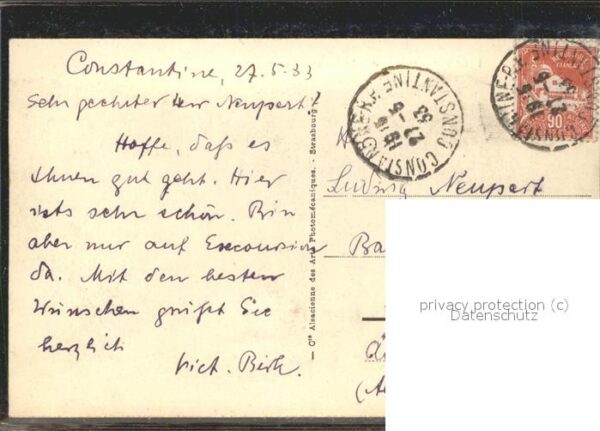 Constantine, 27.5.33
Sehr geehrter Herr Neupert!
Hoffe, daß es
Ihnen gut geht. Hier
ists sehr schön. Bin
aber nur auf Excoursion
da. Mit den besten
Wünschen grüßt Sie
herzlich
Vict. Birk.
Cie Alsacienne des Arts Photomécaniques. - Strasbourg
CONSTANTINE R.P.
27 - 5
33
CONSTANTINE R.P.
90
H
Ludwig Neupert
Ba
privacy protection (c)
Datenschutz